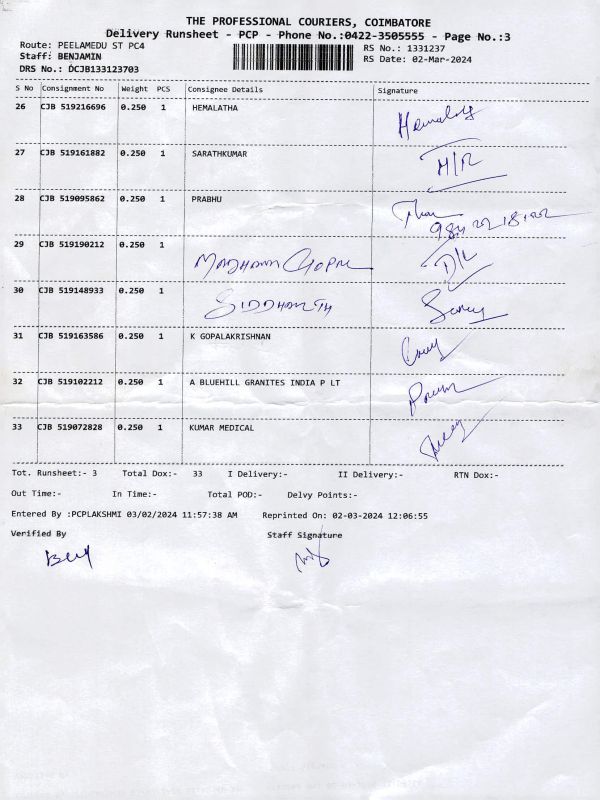 THE PROFESSIONAL COURIERS, COIMBATORE
Delivery Runsheet - PCP - Phone No.:0422-3505555 - Page No.:3
Route: PEELAMEDU ST PC4 RS No.: 1331237
Staff: BENJAMIN RS Date: 02-Mar-2024
DRS No.: DCJB133123703
S No Consignment No Weight PCS Consignee Details Signature
26 CJB 519216696 0.250 1 HEMALATHA
27 CJB 519161882 0.250 1 SARATHKUMAR M/R
28 CJB 519095862 0.250 1 PRABHU
29 CJB 519190212 0.250 1 MADHAN GOPAL D/L
30 CJB 519148933 0.250 1 SIDDHARTH
31 CJB 519163586 0.250 1 K GOPALAKRISHNAN
32 CJB 519102212 0.250 1 A BLUEHILL GRANITES INDIA P LT
33 CJB 519072828 0.250 1 KUMAR MEDICAL
Tot. Runsheet:- 3 Total Dox:- 33 I Delivery:- II Delivery:- RTN Dox:-
Out Time:- In Time:- Total POD:- Delvy Points:-
Entered By :PCPLAKSHMI 03/02/2024 11:57:38 AM Reprinted On: 02-03-2024 12:06:55
Verified By Staff Signature